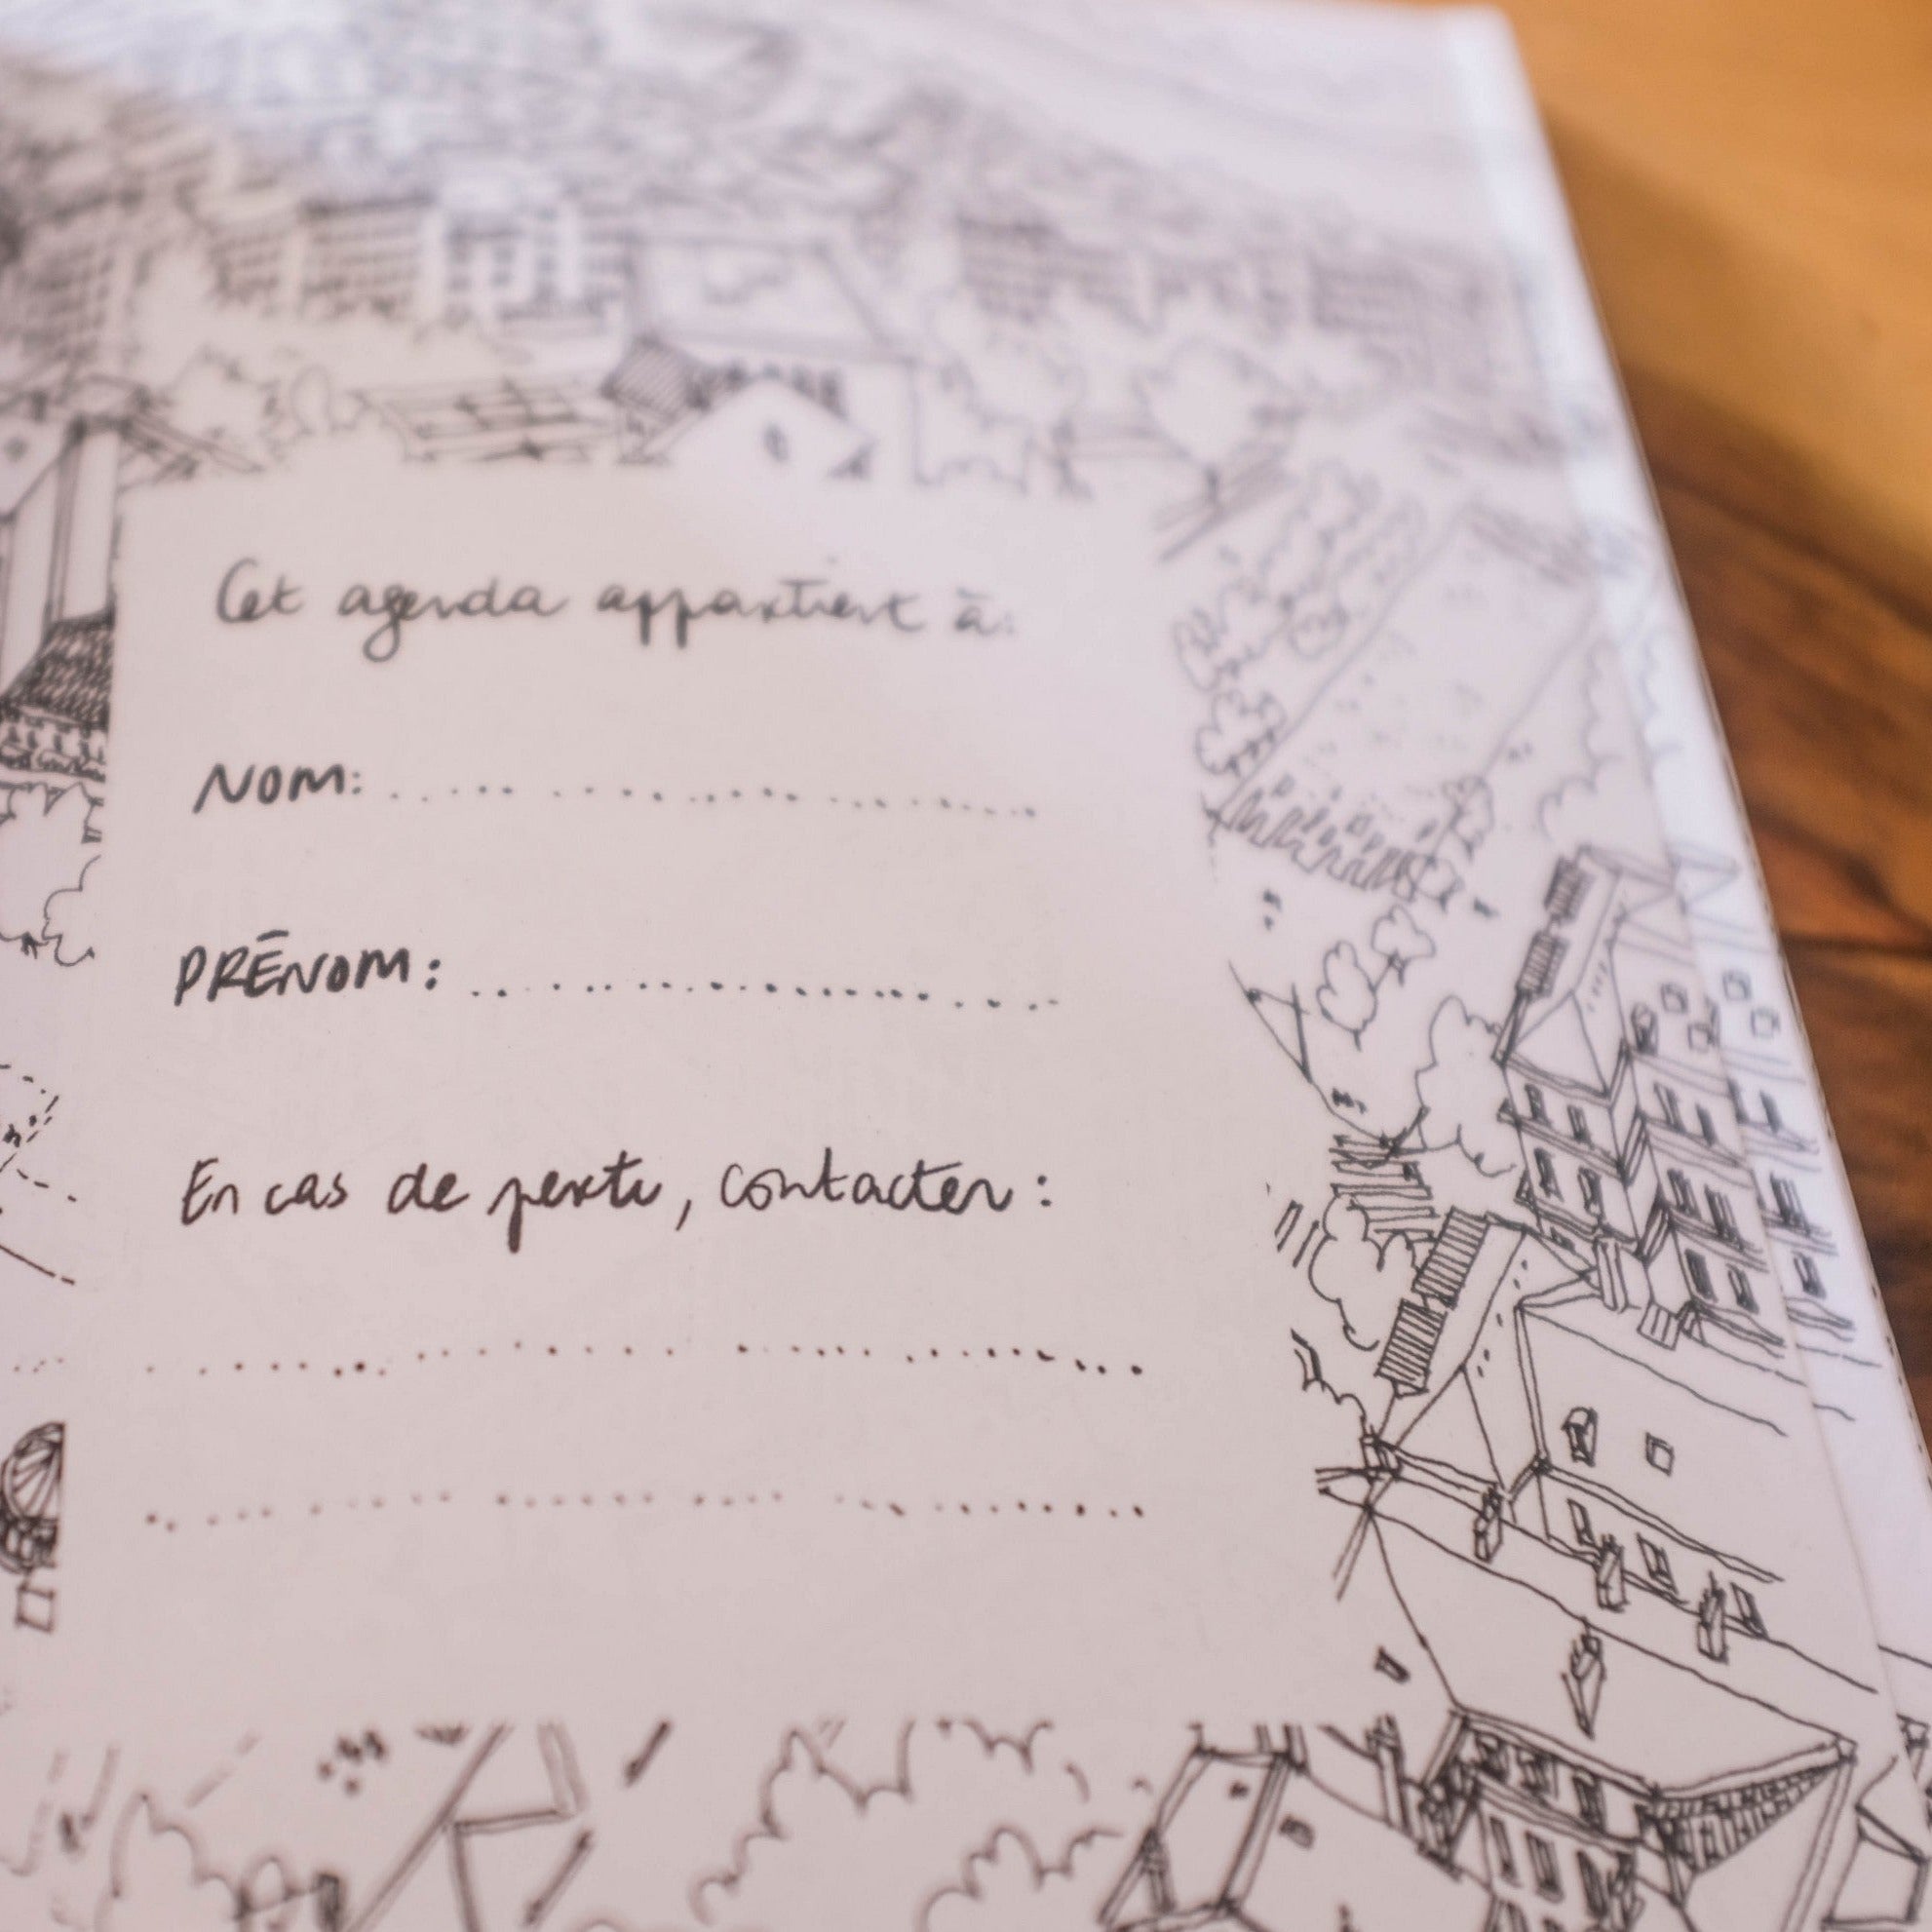 Cet agenda appartient à:
NOM: ..............................
PRÉNOM: ..............................
En cas de perte, contacter :